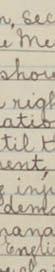 n, sec
e Me
show
n righ
ation
til t
ment,
g inj
dem
pana
Engli